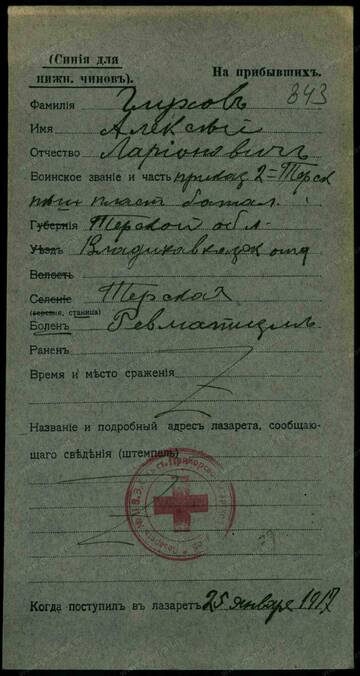 (Синія для
нижн. чиновъ).
На прибывшихъ.
343
Фамилія Глуховъ
Имя Алексѣй
Отчество Ларіоновичъ
Воинское званіе и часть приказ 2=Терск
пласт батал.
Губернія Терской обл.
Уѣздъ Владикавказск отд
Волость
Селеніе Терская
(деревня, станица)
Боленъ Ревматизмъ
Раненъ
Время и мѣсто сраженія
Названіе и подробный адресъ лазарета, сообщаю-
щаго свѣдѣнія (штемпель)
Когда поступилъ въ лазаретъ 25 января 1917